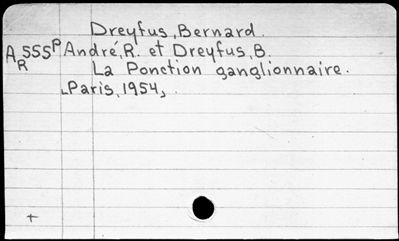 Dreyfus, Bernard.
A 555 P André, R. et Dreyfus, B.
R
La Ponction ganglionnaire.
Paris, 1954.
+